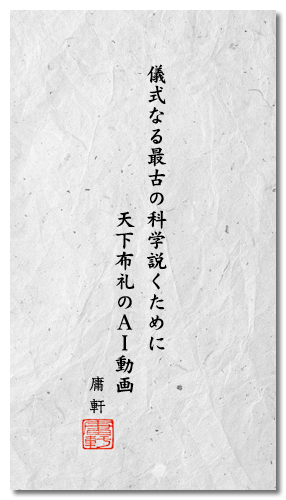 儀式なる最古の科学説くために
天下布礼のAI動画
庸軒
庸軒